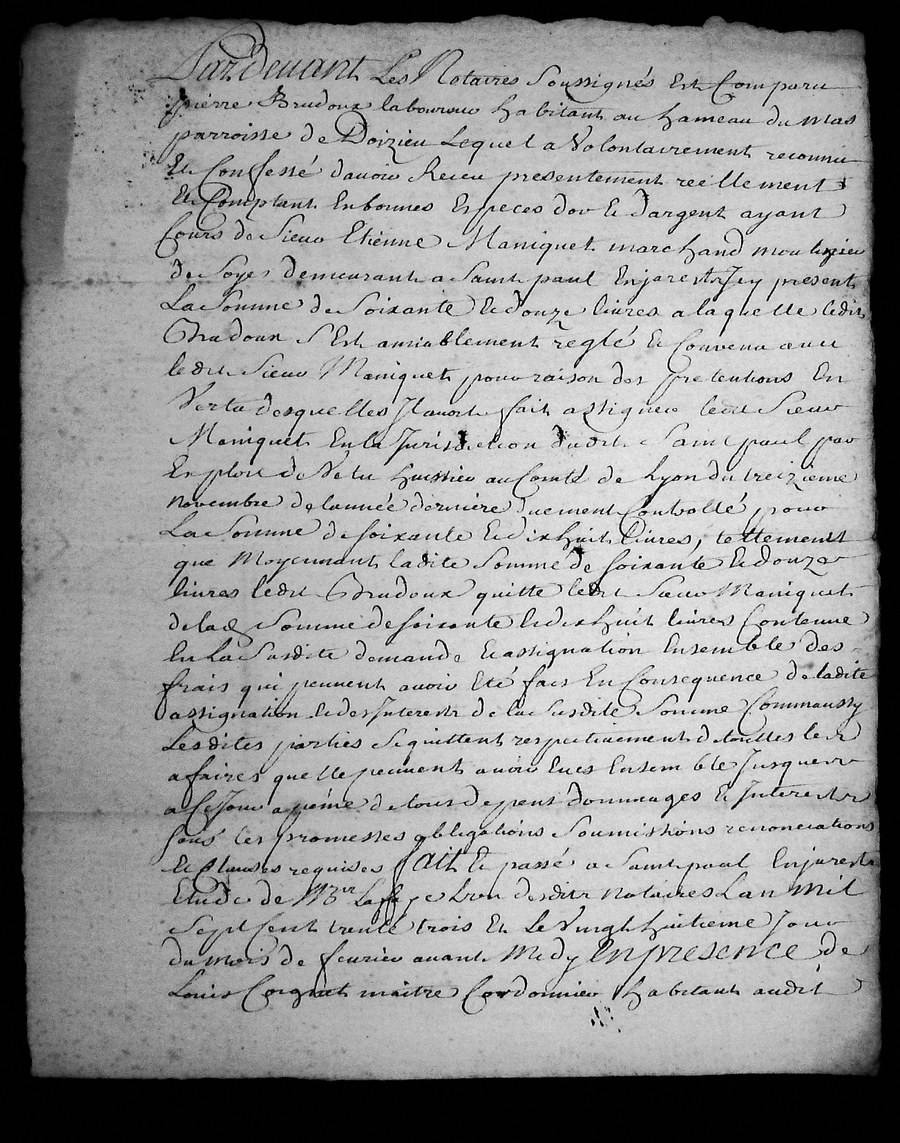 Pardevant Les Notaires Soussignés Est Comparu
pierre Brudoux laboureur habitant au hameau du mas
parroisse de Doizieu Lequel a Volontairement reconnu
Et Confessé d'avoir Receu presentement reellement
Et Comptant En bonnes Especes dor Et dargent ayant
Cours de Sieur Etienne Maniquet marchand moulinier
de Soyes demeurant a Saint paul Enjarest Icy present
La Somme de Soixante Et douze livres a laquelle ledit
Brudoux S'Est amiablement reglé Et Convenu avec
ledit Sieur Maniquet pour raison des pretentions En
Vertu desquelles Il avoit fait assigner ledit Sieur
Maniquet En la Jurisdiction dudit Saint paul par
Exploit de huissier au Comté de Lyon du treizieme
novembre de lannée derniere duement Controllé pour
La Somme de soixante Et dix huit Livres, tellement
que Moyennant ladite Somme de soixante Et douze
livres ledit Brudoux quitte ledit Sieur Maniquet
de lad Somme de soixante Et dix huit livres Contenue
En La Susdite demande Et assignation Ensemble des
frais qui peuvent avoir Eté fais En Consequence de ladite
assignation Et des Interests de la Susdite Somme Comm'aussy
Lesdites parties Se quittent respectivement de touttes les
afaires quelle peuvent avoir Eues Ensemble Jusques
a Ce Jour a peine de tous depens dommages Et Interests
sous les promesses obligations soumissions renonciations
Et Clauses requises fait Et passé a Saint paul Enjarest
Etude de Laffaye L'un desdits Notaires Lan Mil
Sept Cent trente trois Et Le Vingt huitieme Jour
du mois de fevrier avant Midy En presence de
Louis Coignet maitre Cordonnier habitant audit